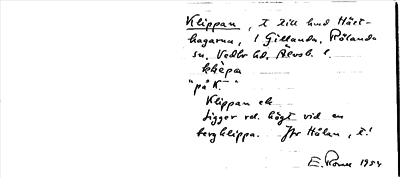 Klippan, t till hmd Häst-
hagarna, i Gillanda, Rölanda
sn. Vedbo hd. Älvsb. l.
"på K."
Klippan ek
ligger rel. högt vid en
bergklippa. Jfr Hålan, t!
E. 1954